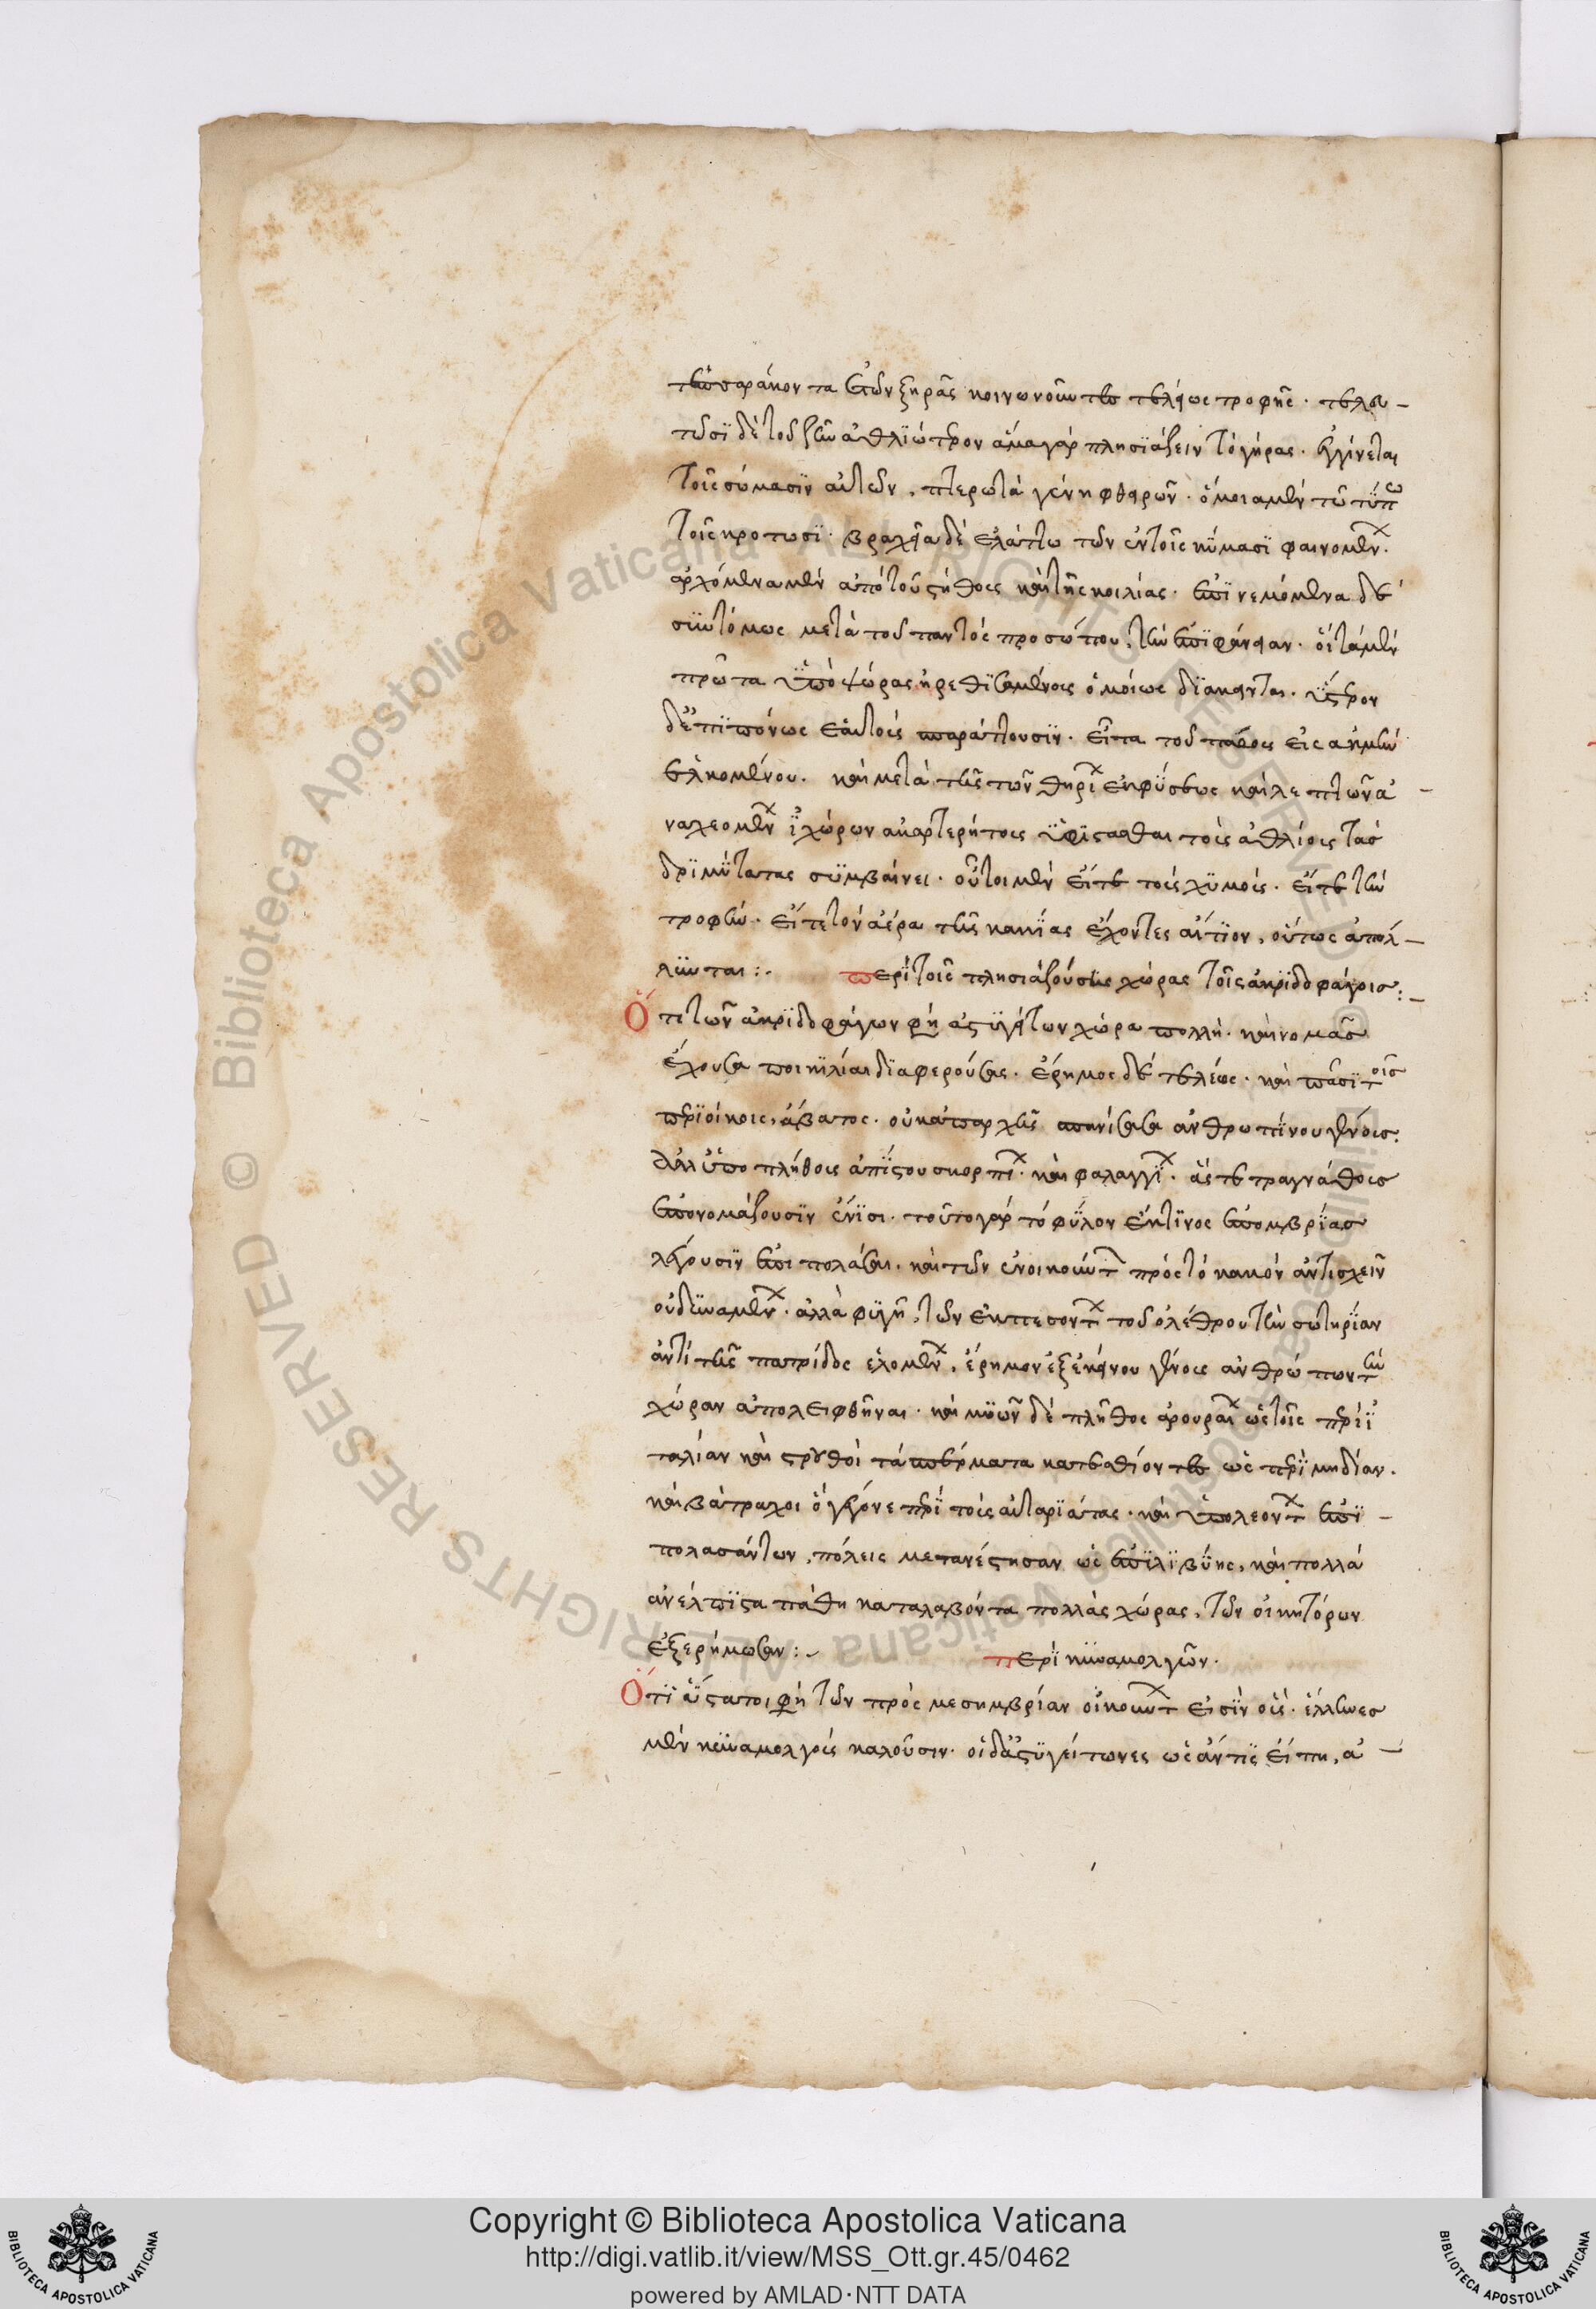 τεσσαράκοντα ἐτῶν ξηρᾶς κοινωνοῦντες τελείως τροφῆς. τελευ-
τῶσι δὲ τοῦ ζῆν ἀθλιώτερον ἅμα γὰρ πλησιάζειν τὸ γῆρας. ἐγγίνεται
τοῖς σώμασιν αὐτῶν, πτερωτὰ γένη φθειρῶν. ὅμοια μὲν τῶ τύπω
τοῖς κρότωσι. βραχεῖα δὲ ἐλάττω τῶν ἐν τοῖς κύμασι φαινομένων.
ἀρχόμενα μὲν ἀπὸ τοῦ στήθους καὶ τῆς κοιλίας. ἐπινεμόμενα δὲ
συντόμως μετὰ τοῦ παντὸς προσώπου, τὴν ἐπιφάνειαν. οἳ τὰ μὲν
πρῶτα ὑπὸ ψώρας ἠρεθισμένοις ὁμοίως διάκεινται. ὕστερον
δὲ ἐπιπόνως ἑαυτοὺς σπαράττουσιν. εἶτα τοῦ πάθους εἰς ἀκμὴν
ἑλκομένου. καὶ μετὰ τῆς τῶν θηρίων ἐκφύσεως καὶ λεπτῶν ἀ-
ναχεομένων ἰχώρων ἀκαρτερήτους ὑφίστασθαι τοὺς ἀθλίους τὰς
δριμύτατας συμβαίνει. οὗτοι μὲν εἴτε τοὺς χυμούς. εἴτε τὴν
τροφὴν. εἴτε τὸν ἀέρα τῆς κακίας ἔχοντες αἴτιον, οὕτως ἀπολ-
λυνται:. περὶ τοῖς πλησιαζούσης χώρας τοῖς ἀκριδοφάγοις:-
Ὅτι τῶν ἀκριδοφάγων φησὶν ἀστυγείτων χώρα πολλὴ. καὶ νομὰς
ἔχουσα ποικιλίαι διαφερούσας. ἔρημος δὲ τελέως. καὶ πᾶσι τοῖς
περιοίκοις, ἄβατος. οὐκ ἀπαρχῆς σπανίσασα ἀνθρωπίνου γένους.
ἀλλ' ὑπὸ πλήθους ἀπίστου σκορπίων. καὶ φαλαγγίων. ἅς τετραγνάθους
ἐπονομάζουσιν ἔνιοι. τοῦτο γὰρ τὸ φῦλον ἔκ τινος ἐπομβρίας
λέγουσιν ἐπιπολάσαι. καὶ τῶν ἐνοικούντων πρὸς τὸ κακὸν ἀντισχεῖν
οὐ δυναμένων. ἀλλὰ φυγῆ, τῶν ἐκπεσόντων τοῦ ὀλέθρου τὴν σωτηρίαν
ἀντὶ τῆς πατρίδος ἑλομένων, ἔρημον ἐξ ἐκείνου γένους ἀνθρώπων τὴν
χώραν ἀπολειφθῆναι. καὶ μυῶν δὲ πλῆθος ἀρουραίων ὡς τοῖς περὶ ἰ
ταλίαν καὶ στρουθοὶ τὰ σπέρματα κατεσθίοντες ὡς περὶ μηδίαν.
καὶ βάτραχοι ὃ γέγονε περὶ τοὺς αὐταριάτας. καὶ λεόντων ἐπι-
πολασάντων, πόλεις μετανέστησαν ὡς ἐπὶ λιβύης, καὶ πολλὰ
ἀνέλπιστα πάθη καταλαβόντα πολλὰς χώρας, τῶν οἰκητόρων
ἐξερήμωσαν:- περὶ κυναμολγῶν.
Ὅτι ὕστατοι, φησὶ τῶν πρὸς μεσημβρίαν οἰκούντων εἰσὶν οὓς. ἕλληνες
μὲν κυναμολγοὺς καλοῦσιν. οἱ δ' ἀστυγείτωνες ὡς ἄν τις εἴπη, ἀ-
Copyright © Biblioteca Apostolica Vaticana
http://digi.vatlib.it/view/MSS_Ott.gr.45/0462
powered by AMLAD·NTT DATA